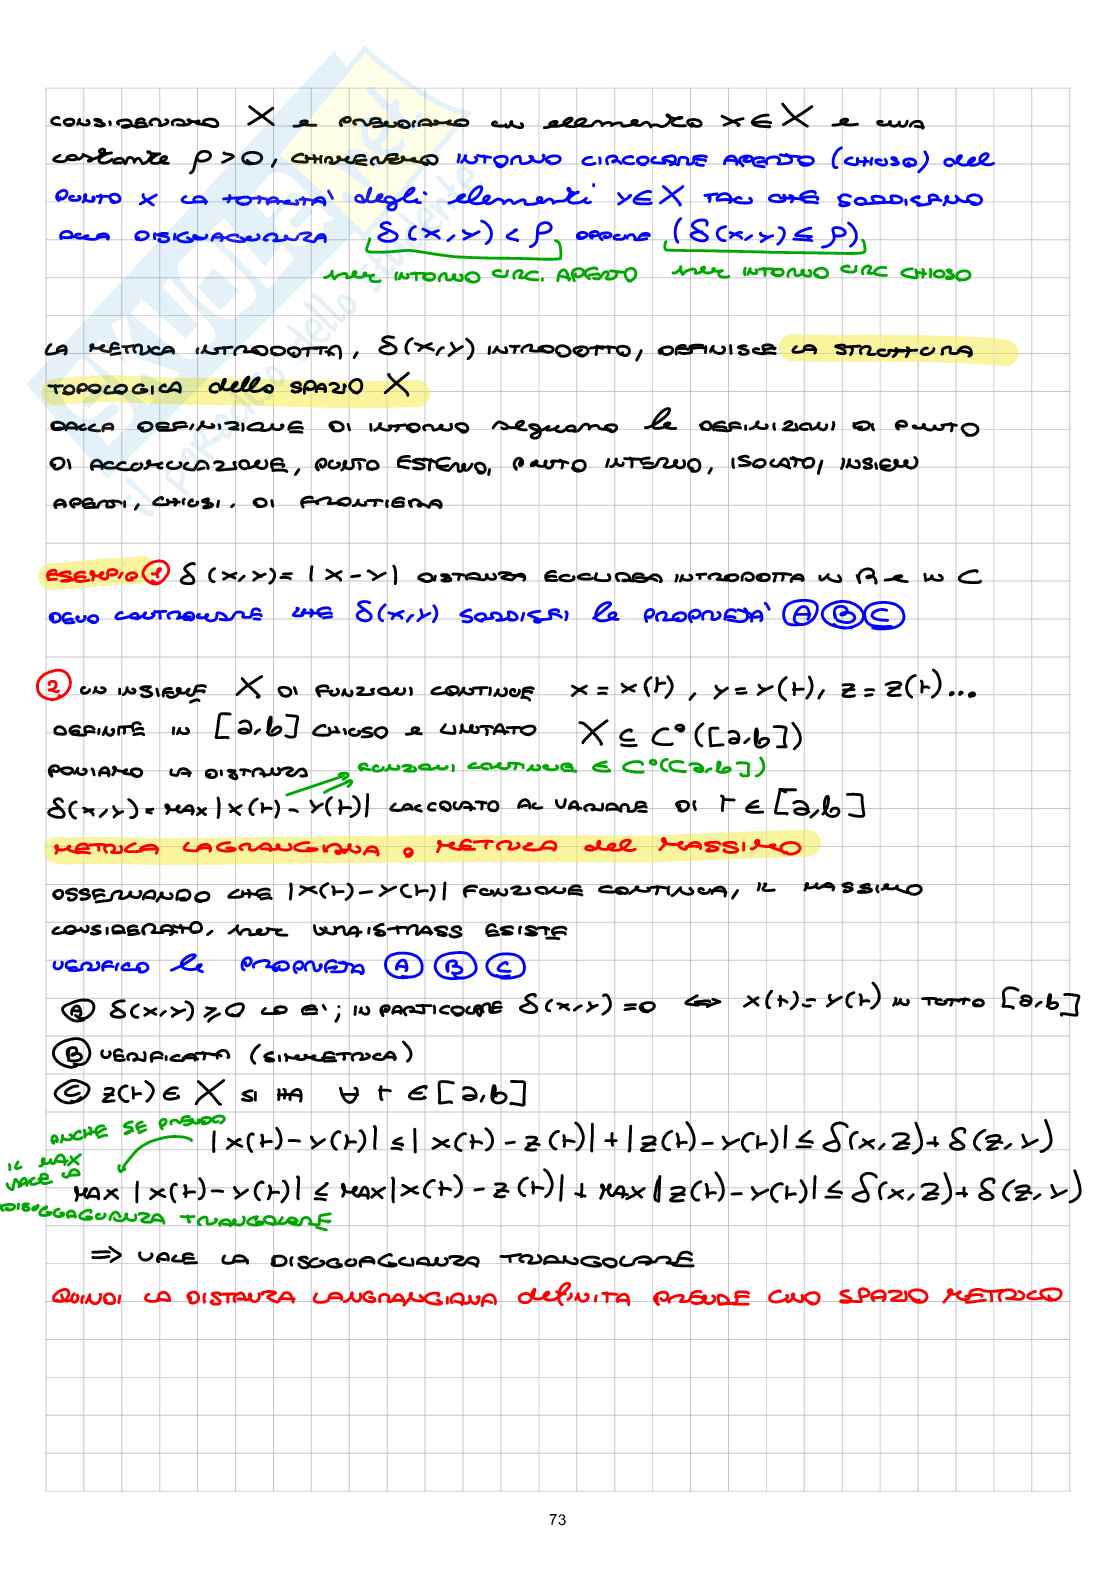 CONSIDERIAMO X e PRENDIAMO un elemento x ∈ X e una
costante ρ > 0, CHIAMEREMO INTORNO CIRCOLARE APERTO (CHIUSO) del
PUNTO X LA TOTALITA' degli elementi y ∈ X TALI CHE SODDISFANO
ALLA DISUGUAGLIANZA δ(x,y) < ρ OPPURE (δ(x,y) ≤ ρ)
per INTORNO CIRC. APERTO per INTORNO CIRC CHIUSO
LA METRICA INTRODOTTA, δ(x,y) INTRODOTTO, DEFINISCE LA STRUTTURA
TOPOLOGICA dello SPAZIO X
DALLA DEFINIZIONE DI INTORNO seguono le DEFINIZIONI DI PUNTO
DI ACCUMULAZIONE, PUNTO ESTERNO, PUNTO INTERNO, ISOLATO, INSIEMI
APERTI, CHIUSI. DI FRONTIERA
ESEMPIO 1 δ(x,y) = |x-y| DISTANZA EUCLIDEA INTRODOTTA IN R e IN C
DEVO CONTROLLARE CHE δ(x,y) SODDISFI le PROPRIETA' A B C
2 UN INSIEME X DI FUNZIONI CONTINUE x = x(t), y = y(t), z = z(t)...
DEFINITE IN [a,b] CHIUSO e LIMITATO X ⊆ C°([a,b])
PONIAMO LA DISTANZA FUNZIONI CONTINUE ∈ C°([a,b])
δ(x,y) = MAX |x(t) - y(t)| CALCOLATO AL VARIARE DI t ∈ [a,b]
METRICA LAGRANGIANA o METRICA del MASSIMO
OSSERVANDO CHE |x(t) - y(t)| FUNZIONE CONTINUA, IL MASSIMO
CONSIDERATO, per WEIERSTRASS ESISTE
VERIFICO le PROPRIETA A B C
A δ(x,y) ≥ 0 LO E'; IN PARTICOLARE δ(x,y) = 0 ⟺ x(t) = y(t) IN TUTTO [a,b]
B VERIFICATA (SIMMETRICA)
C z(t) ∈ X SI HA ∀ t ∈ [a,b]
ANCHE SE PRENDO
|x(t) - y(t)| ≤ |x(t) - z(t)| + |z(t) - y(t)| ≤ δ(x,z) + δ(z,y)
IL MAX
VALE LA
MAX |x(t) - y(t)| ≤ MAX |x(t) - z(t)| + MAX |z(t) - y(t)| ≤ δ(x,z) + δ(z,y)
DISUGUAGLIANZA TRIANGOLARE
⇒ VALE LA DISUGUAGLIANZA TRIANGOLARE
QUINDI LA DISTANZA LANGRANGIANA definita PRENDE UNO SPAZIO METRICO
73